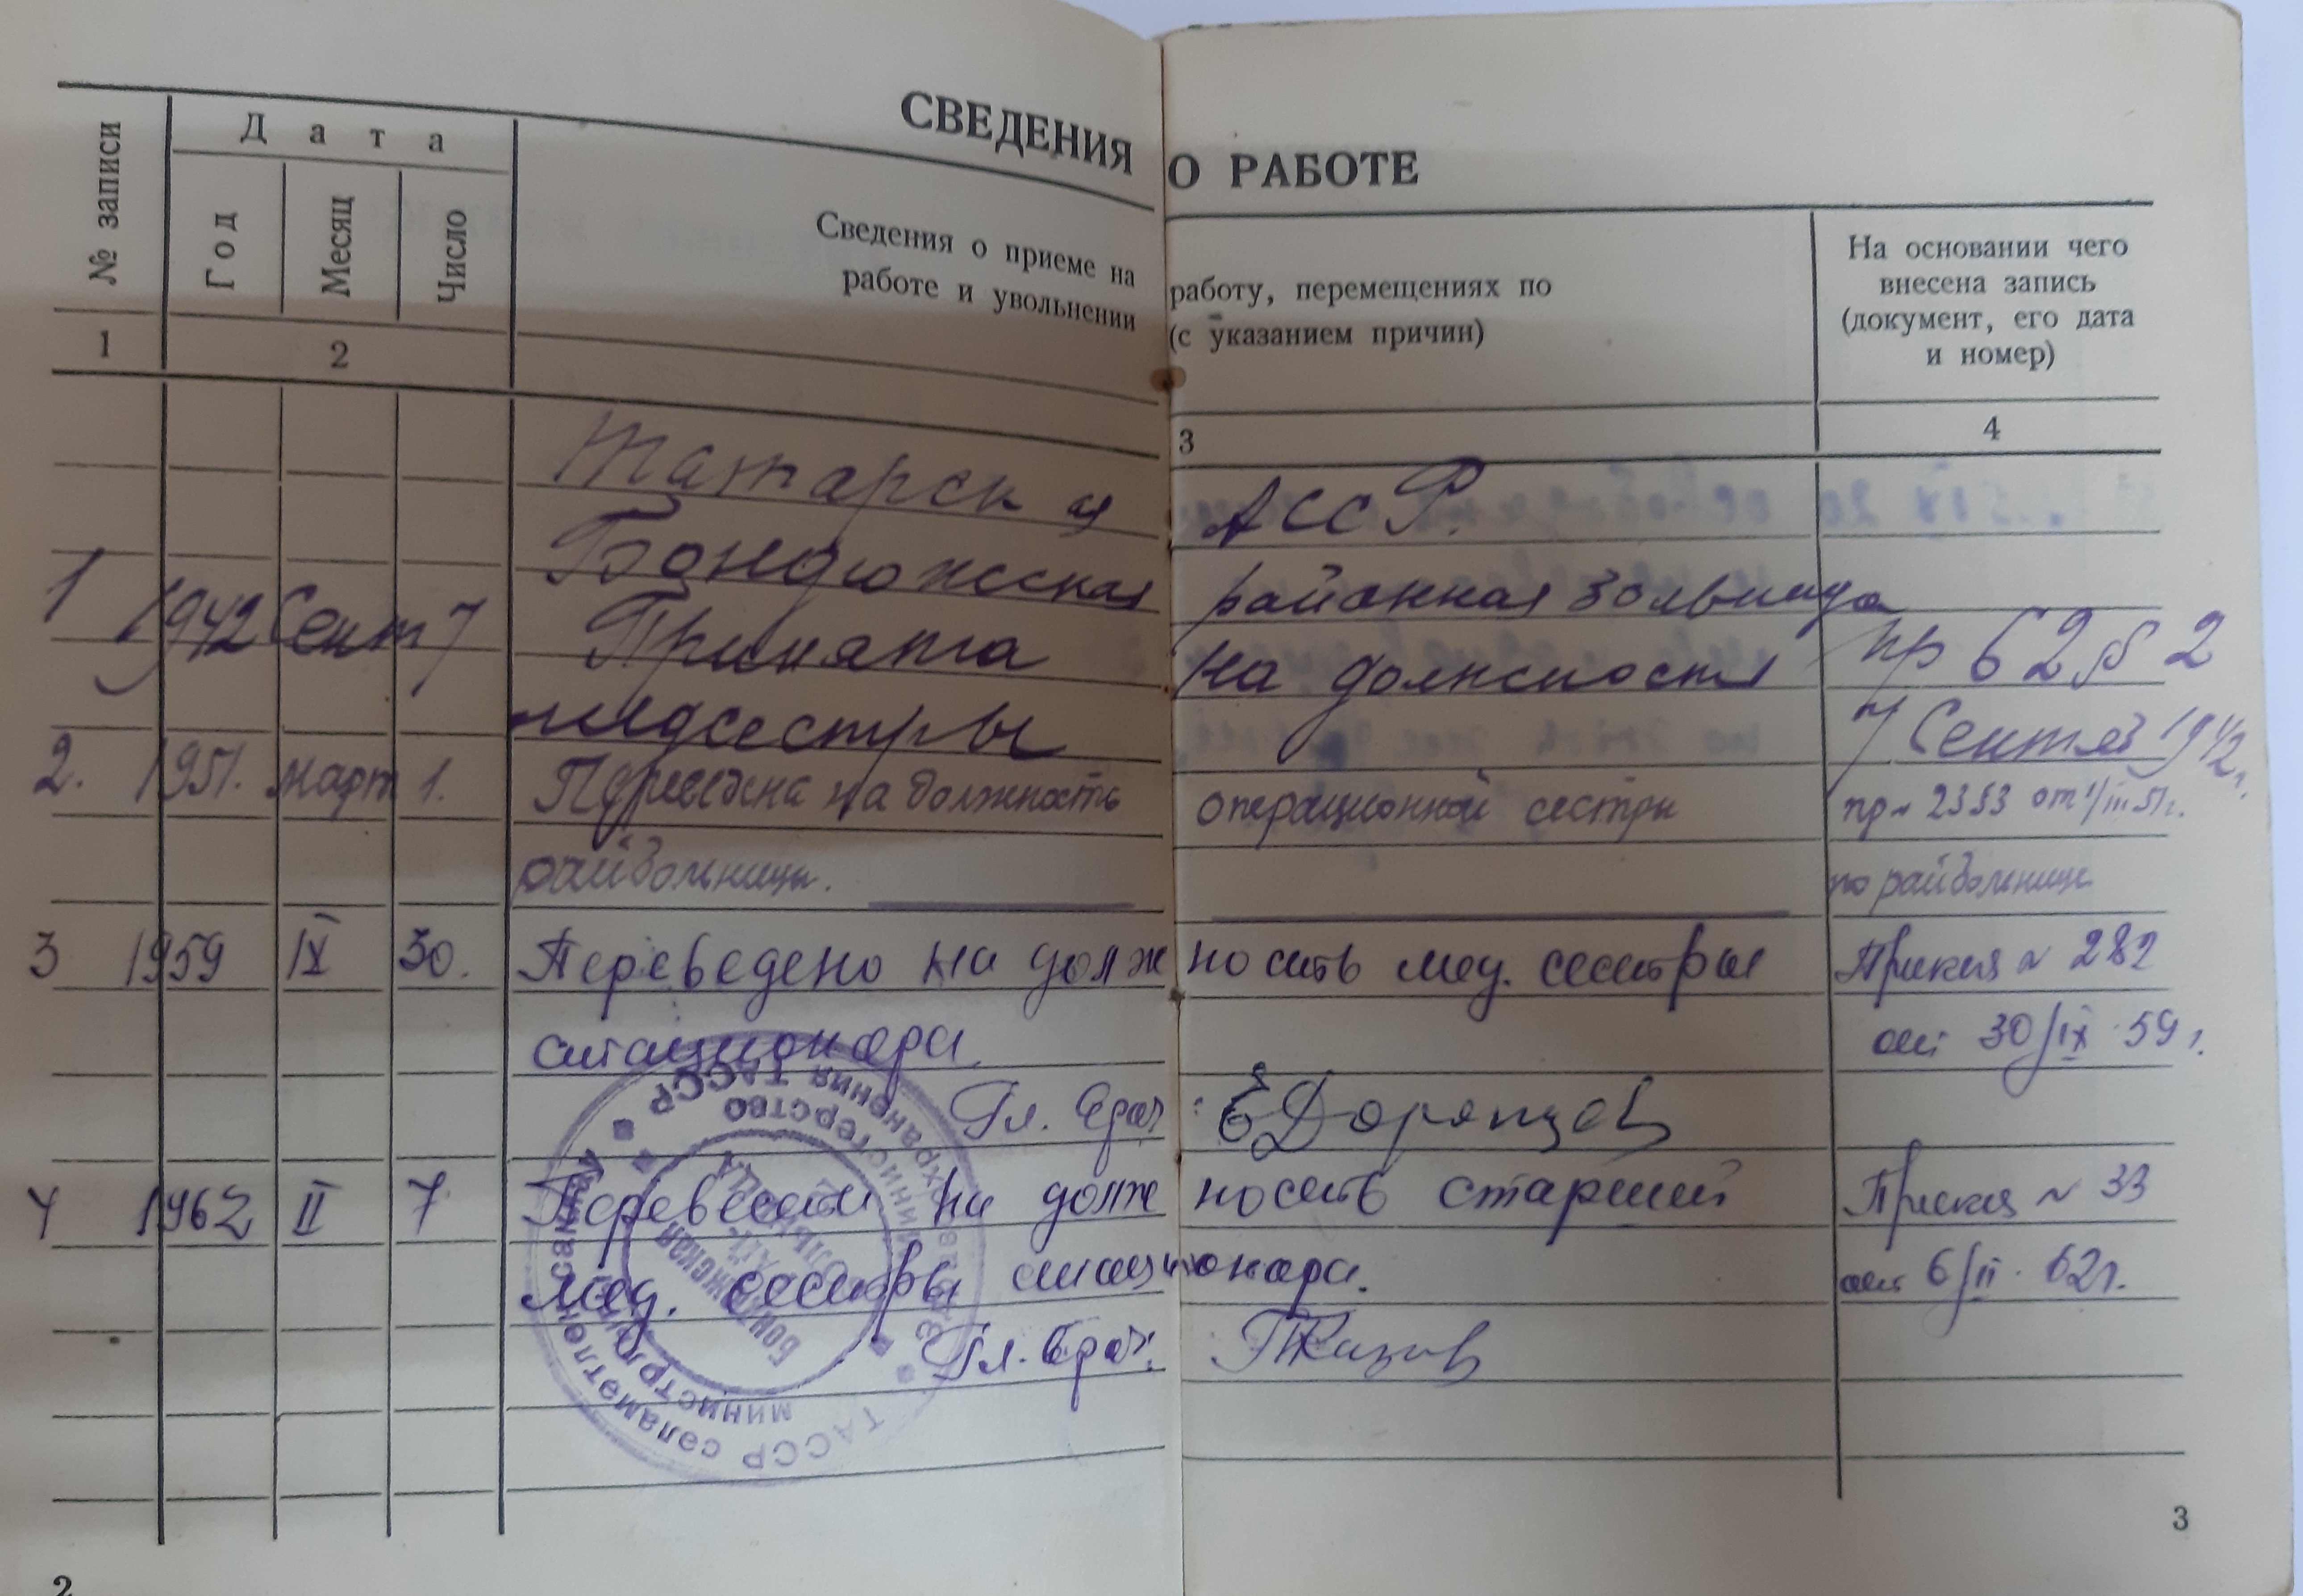 СВЕДЕНИЯ О РАБОТЕ
№ записи
Дата
Год
Месяц
Число
Сведения о приеме на работу, перемещениях по
работе и увольнении (с указанием причин)
На основании чего
внесена запись
(документ, его дата
и номер)
1 2 3 4
Татарск я АССР.
Бондюжская районная больница
1 1942 Сент 7 Принята на должность пр 62 § 2
медсестры 7 Сентяб 1942г.
2. 1951. март 1. Переведена на должность операционной сестры пр~ 2353 от 1/III 51г.
райбольницы. по райбольнице
3 1959 IX 30. Переведено на должность мед. сестры Приказ ~ 282
стационара. от 30/IX 59 г.
Гл. врач:
4 1962 II 7 Перевести на должность старшей Приказ ~ 33
мед. сестры стационара. от 6/II. 62г.
Гл. врач:
ТАССР
министерство
здравоохранения
ТАССР сәламәтлек саклау
министрлыгы
2
3